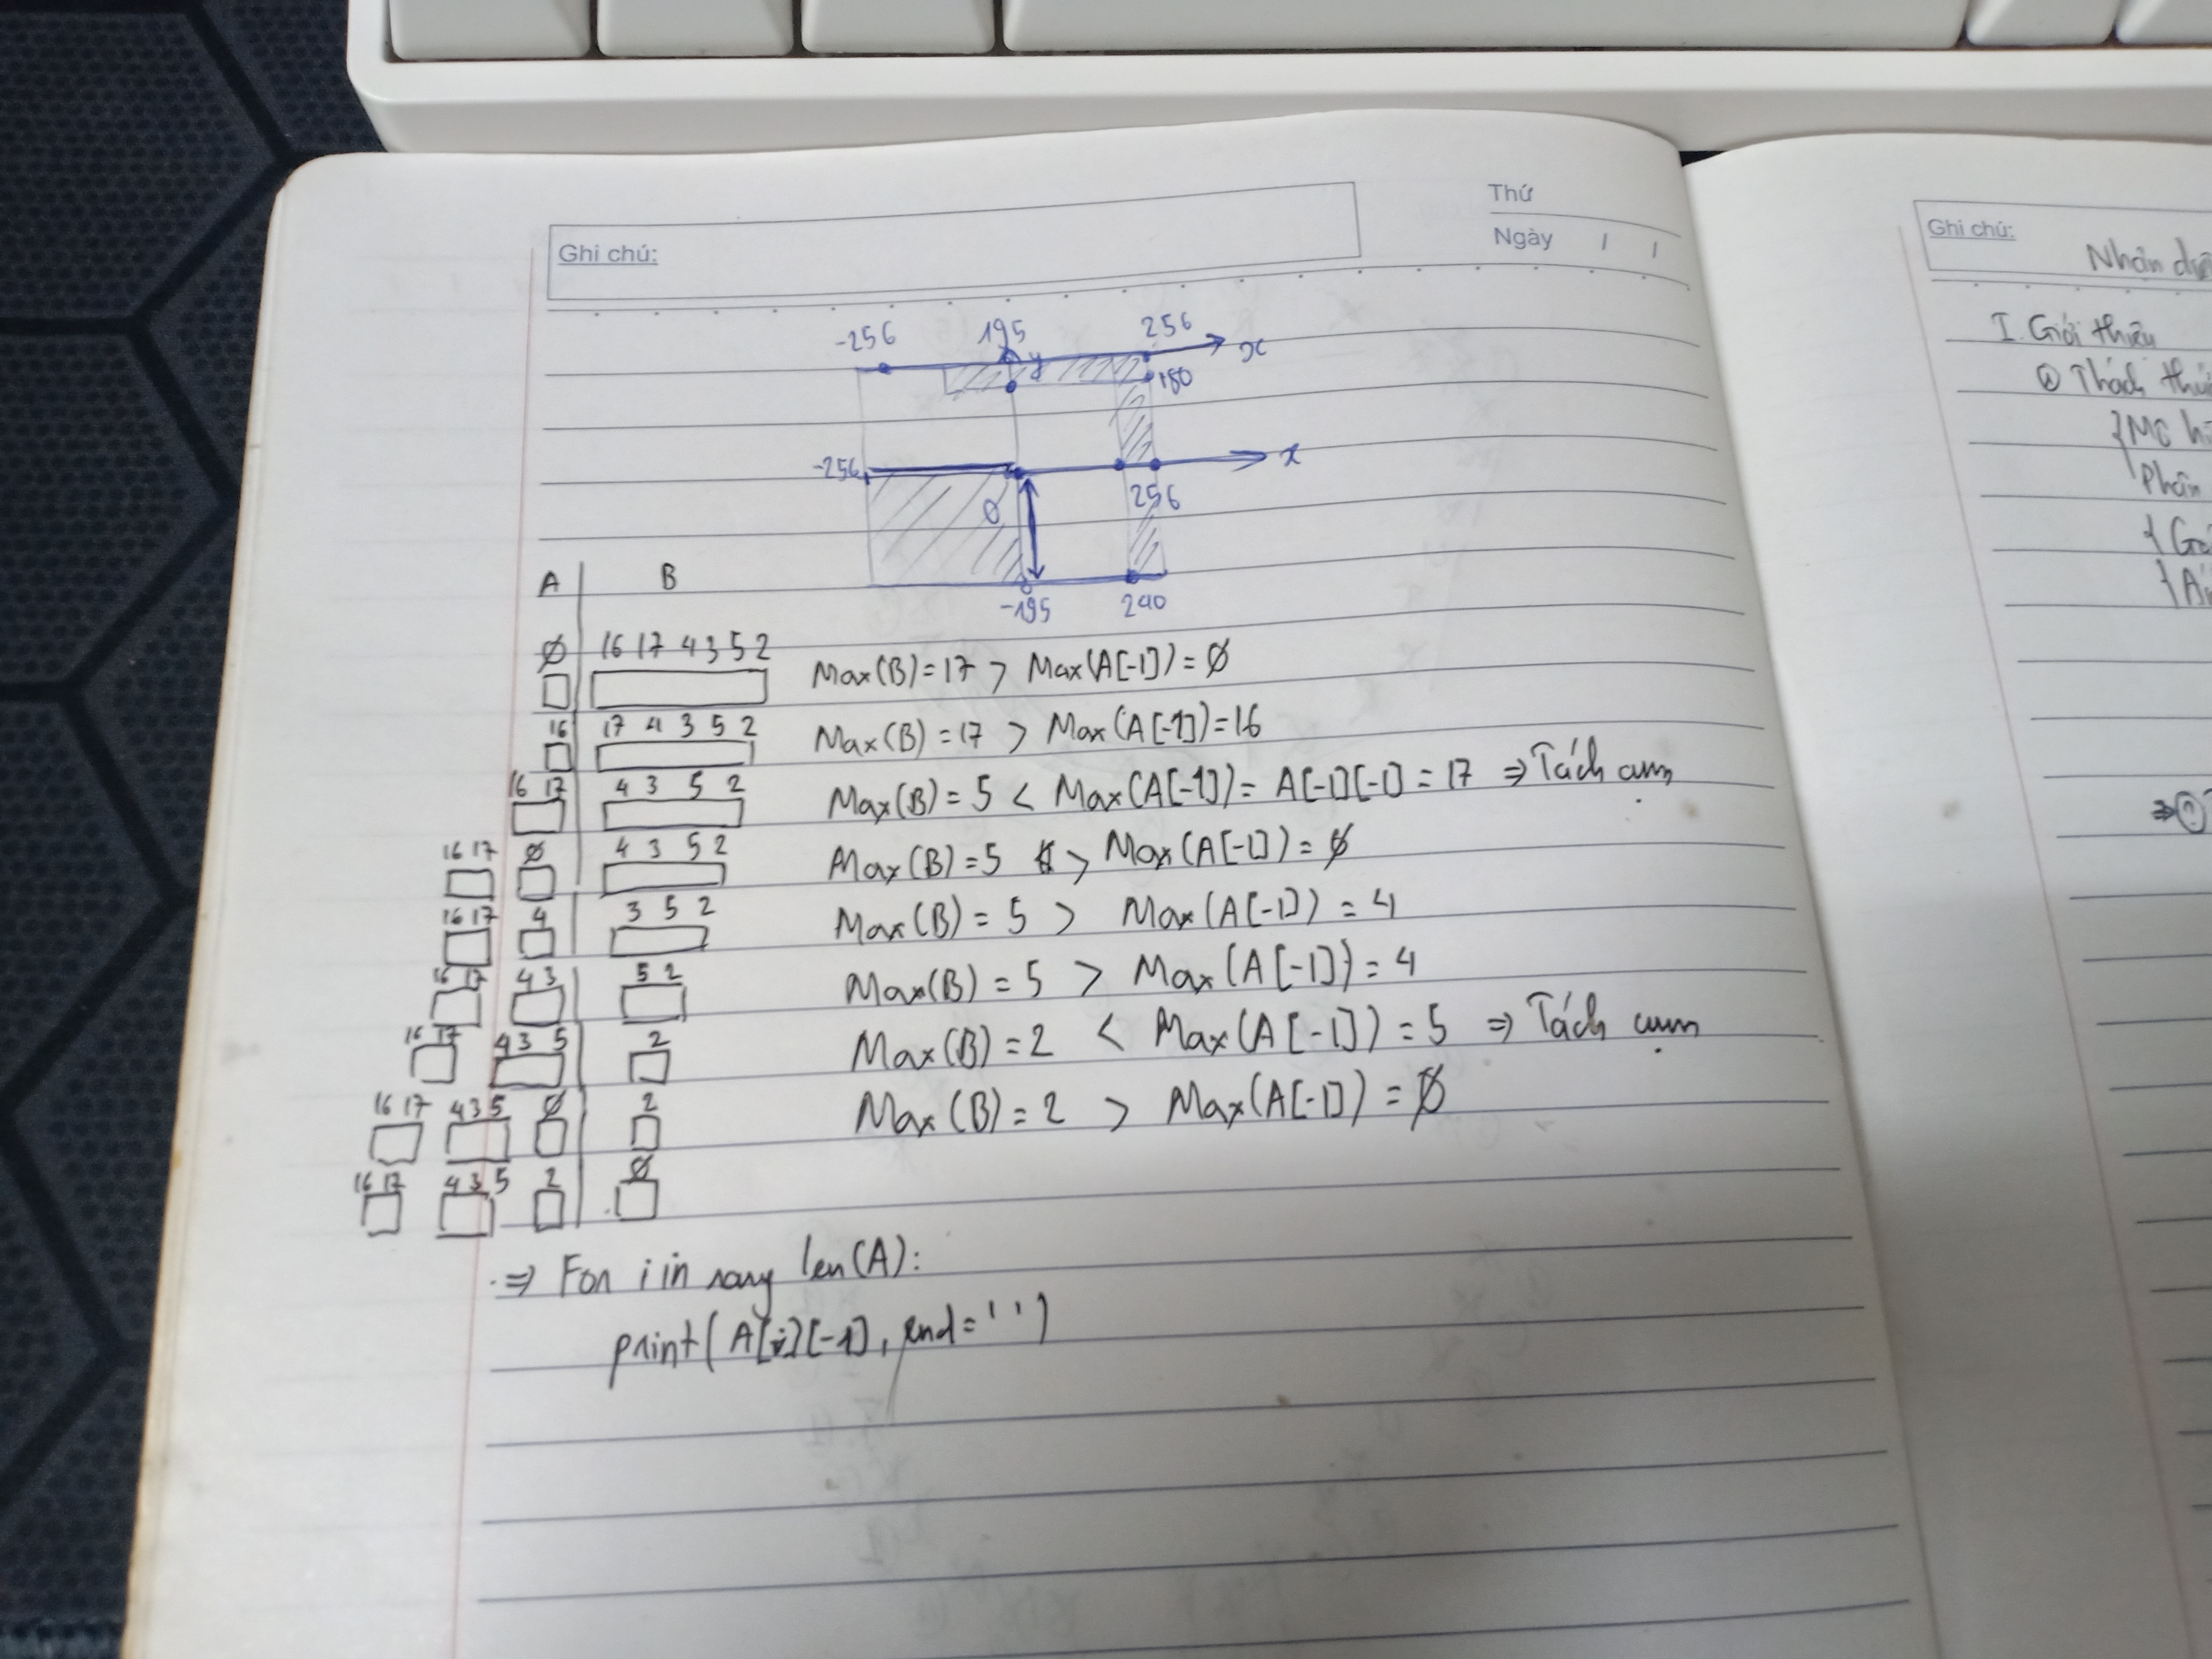 Ghi chú:
Thứ
Ngày / /
-256 195 256
x
y
180
-256
x
0
256
-195 240
A B
∅ 16 17 4 3 5 2 Max(B)=17 > Max(A[-1])=∅
16 17 4 3 5 2 Max(B)=17 > Max(A[-1])=16
16 17 4 3 5 2 Max(B)=5 < Max(A[-1])= A[-1][-1]=17 ⇒ Tách cụm
16 17 ∅ 4 3 5 2 Max(B)=5 > Max(A[-1])=∅
16 17 4 3 5 2 Max(B)=5 > Max(A[-1])=4
16 17 4 3 5 2 Max(B)=5 > Max(A[-1])=4
16 17 4 3 5 2 Max(B)=2 < Max(A[-1])=5 ⇒ Tách cụm
16 17 4 3 5 ∅ 2 Max(B)=2 > Max(A[-1])=∅
16 17 4 3 5 2 ∅
⇒ For i in len(A):
print(A[i][-1], end=' ')
Ghi chú:
Nhận
I. Giới thiệu
Thách
{MC
Phân